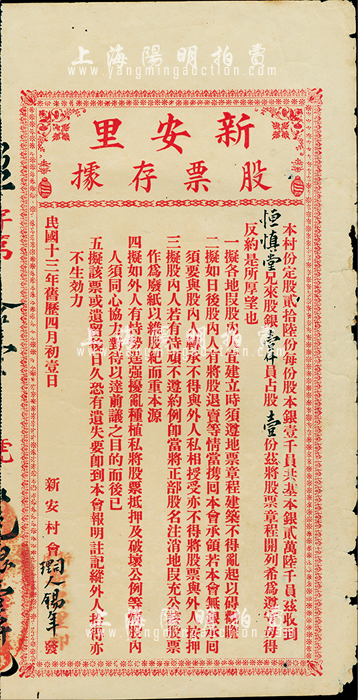 上海陽明拍賣
www.yangmingauction.com
新安里
股票存據
本村份定股貳拾陸份每份股本銀壹千員共基本銀貳萬陸千員茲收到
恒慎堂兄來股銀壹仟員占股壹份茲將股票章程開列希為遵守毋得
反約是所厚望也
一擬各地段股內人宜建立時須遵地票章程建築不得亂起以碍觀瞻
二擬如日後股內人有將股退賣等情當携回本會承領若本會無銀領回
須要與股內人承領不得與外人私相授受亦不得將股票與外人按押
三擬股內人若有恃頑不遵約例即當將正部股名注消地段充公所執股票
作為廢紙以維股而重本源
四擬如外人有恃強擾亂種植私將股票抵押及破壞公例等股內
人須同心協力對待以達前議之目的而後已
五擬該票或遺留日久恐有遺失要即到本會報明註記縱外人拾得亦
不生効力
民國十三年舊歷四月初壹日
新安村會
發